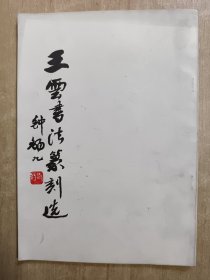 王雲書法篆刻选
钟楊九